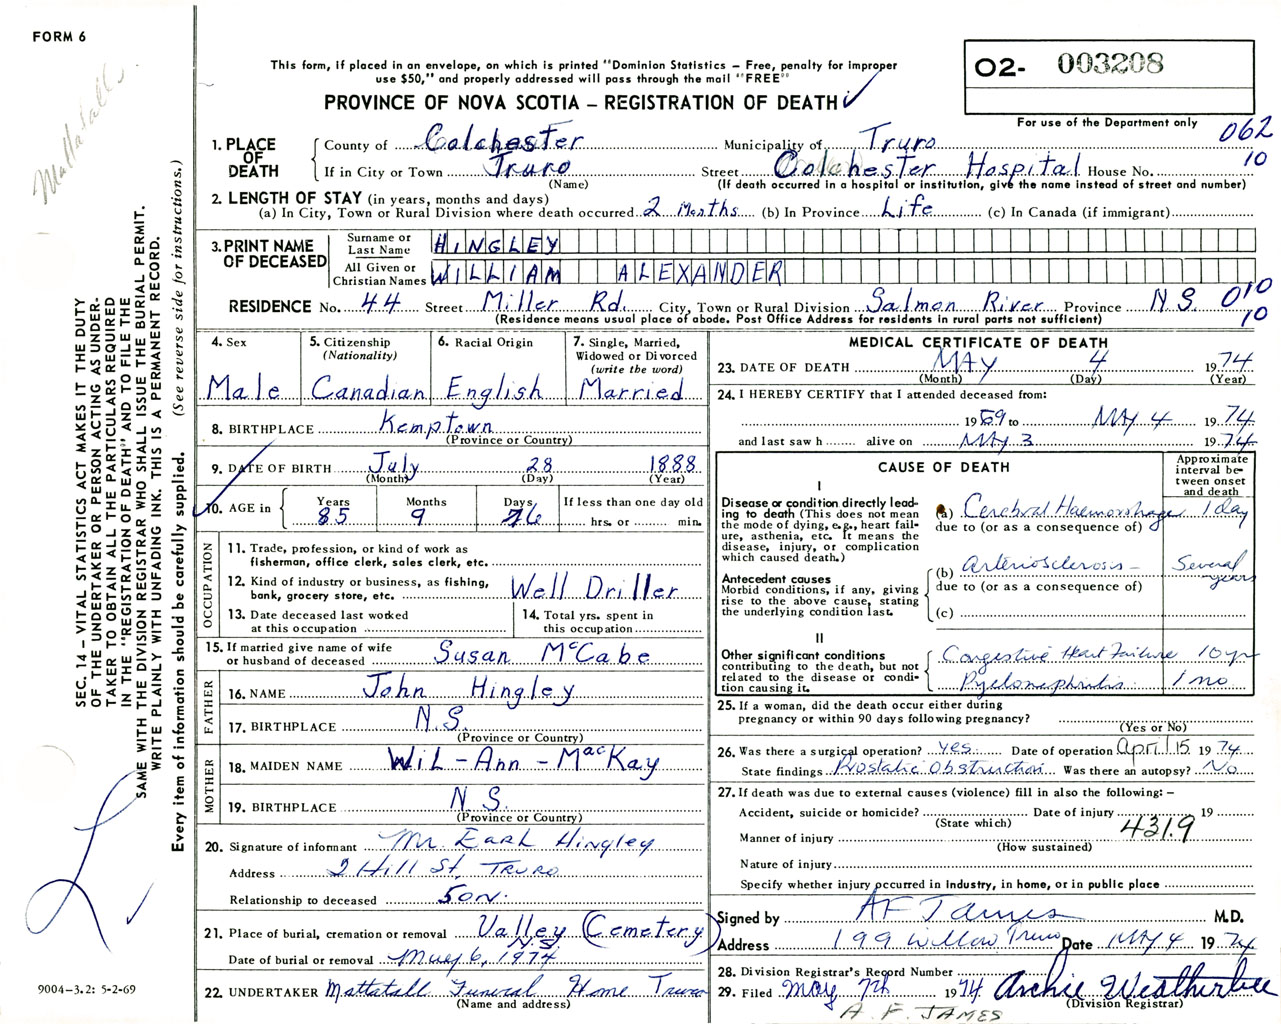 FORM 6
Mattatall
This form, if placed in an envelope, on which is printed "Dominion Statistics – Free, penalty for improper
use $50," and properly addressed will pass through the mail "FREE"
PROVINCE OF NOVA SCOTIA – REGISTRATION OF DEATH
O2- 003208
For use of the Department only
062
10
1. PLACE OF DEATH
County of Colchester Municipality of Truro
If in City or Town Truro Street Colchester Hospital House No.
(Name) (If death occurred in a hospital or institution, give the name instead of street and number)
2. LENGTH OF STAY (in years, months and days)
(a) In City, Town or Rural Division where death occurred 2 Months (b) In Province Life (c) In Canada (if immigrant)
3. PRINT NAME OF DECEASED
Surname or Last Name HINGLEY
All Given or Christian Names WILLIAM ALEXANDER
RESIDENCE No. 44 Street Miller Rd. City, Town or Rural Division Salmon River Province N.S. 010
(Residence means usual place of abode. Post Office Address for residents in rural parts not sufficient) 10
4. Sex Male
5. Citizenship (Nationality) Canadian
6. Racial Origin English
7. Single, Married, Widowed or Divorced (write the word) Married
8. BIRTHPLACE Kemptown
(Province or Country)
9. DATE OF BIRTH July 28 1888
(Month) (Day) (Year)
10. AGE in Years 85 Months 9 Days 26 If less than one day old hrs. or min.
OCCUPATION
11. Trade, profession, or kind of work as
fisherman, office clerk, sales clerk, etc.
12. Kind of industry or business, as fishing,
bank, grocery store, etc. Well Driller
13. Date deceased last worked
at this occupation
14. Total yrs. spent in
this occupation
15. If married give name of wife
or husband of deceased Susan McCabe
FATHER
16. NAME John Hingley
17. BIRTHPLACE N.S.
(Province or Country)
MOTHER
18. MAIDEN NAME Wil-Ann-MacKay
19. BIRTHPLACE N.S.
(Province or Country)
20. Signature of informant Mr. Earl Hingley
Address 2 Hill St, Truro
Relationship to deceased Son.
21. Place of burial, cremation or removal Valley (Cemetery)
N.S.
Date of burial or removal May 6, 1974
22. UNDERTAKER Mattatall Funeral Home Truro
(Name and address)
MEDICAL CERTIFICATE OF DEATH
23. DATE OF DEATH MAY 4 1974
(Month) (Day) (Year)
24. I HEREBY CERTIFY that I attended deceased from:
1969 to MAY 4 1974
and last saw h alive on MAY 3 1974
CAUSE OF DEATH
Approximate interval between onset and death
I
Disease or condition directly leading to death (This does not mean the mode of dying, e.g., heart failure, asthenia, etc. It means the disease, injury, or complication which caused death.)
(a) Cerebral Haemorrhage 1 day
due to (or as a consequence of)
Antecedent causes
Morbid conditions, if any, giving rise to the above cause, stating the underlying condition last.
(b) Arteriosclerosis – Several years
due to (or as a consequence of)
(c)
II
Other significant conditions
contributing to the death, but not related to the disease or condition causing it.
Congestive Heart Failure 10 yr
Pyelonephritis 1 mo.
25. If a woman, did the death occur either during
pregnancy or within 90 days following pregnancy?
(Yes or No)
26. Was there a surgical operation? yes. Date of operation April 15 1974
State findings Prostatic Obstruction Was there an autopsy? No
27. If death was due to external causes (violence) fill in also the following: –
Accident, suicide or homicide? Date of injury 19
(State which) 431.9
Manner of injury
(How sustained)
Nature of injury
Specify whether injury occurred in industry, in home, or in public place
Signed by AF James M.D.
Address 199 Willow Truro Date MAY 4 1974
28. Division Registrar's Record Number
29. Filed May 7th 1974 Archie Weatherbee
(Division Registrar)
A. F. JAMES
SEC. 14 – VITAL STATISTICS ACT MAKES IT THE DUTY
OF THE UNDERTAKER OR PERSON ACTING AS UNDER-
TAKER TO OBTAIN ALL THE PARTICULARS REQUIRED
IN THE "REGISTRATION OF DEATH" AND TO FILE THE
SAME WITH THE DIVISION REGISTRAR WHO SHALL ISSUE THE BURIAL PERMIT.
WRITE PLAINLY WITH UNFADING INK. THIS IS A PERMANENT RECORD.
Every item of information should be carefully supplied. (See reverse side for instructions.)
9004-3.2: 5-2-69